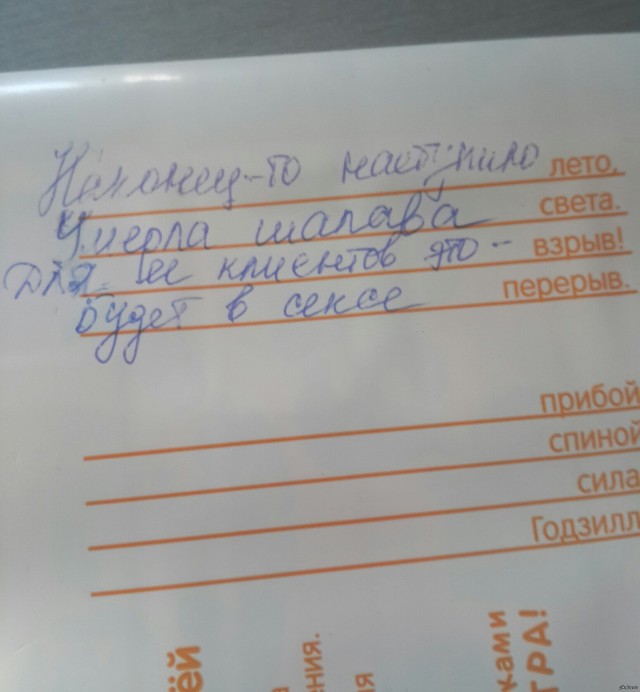 Наконец-то наступило лето,
Умерла шалава света.
Для ее клиентов это - взрыв!
Будет в сексе перерыв.
прибой
спиной
сила
Годзилл
ёй
ения.
ия
ками
ТРА!